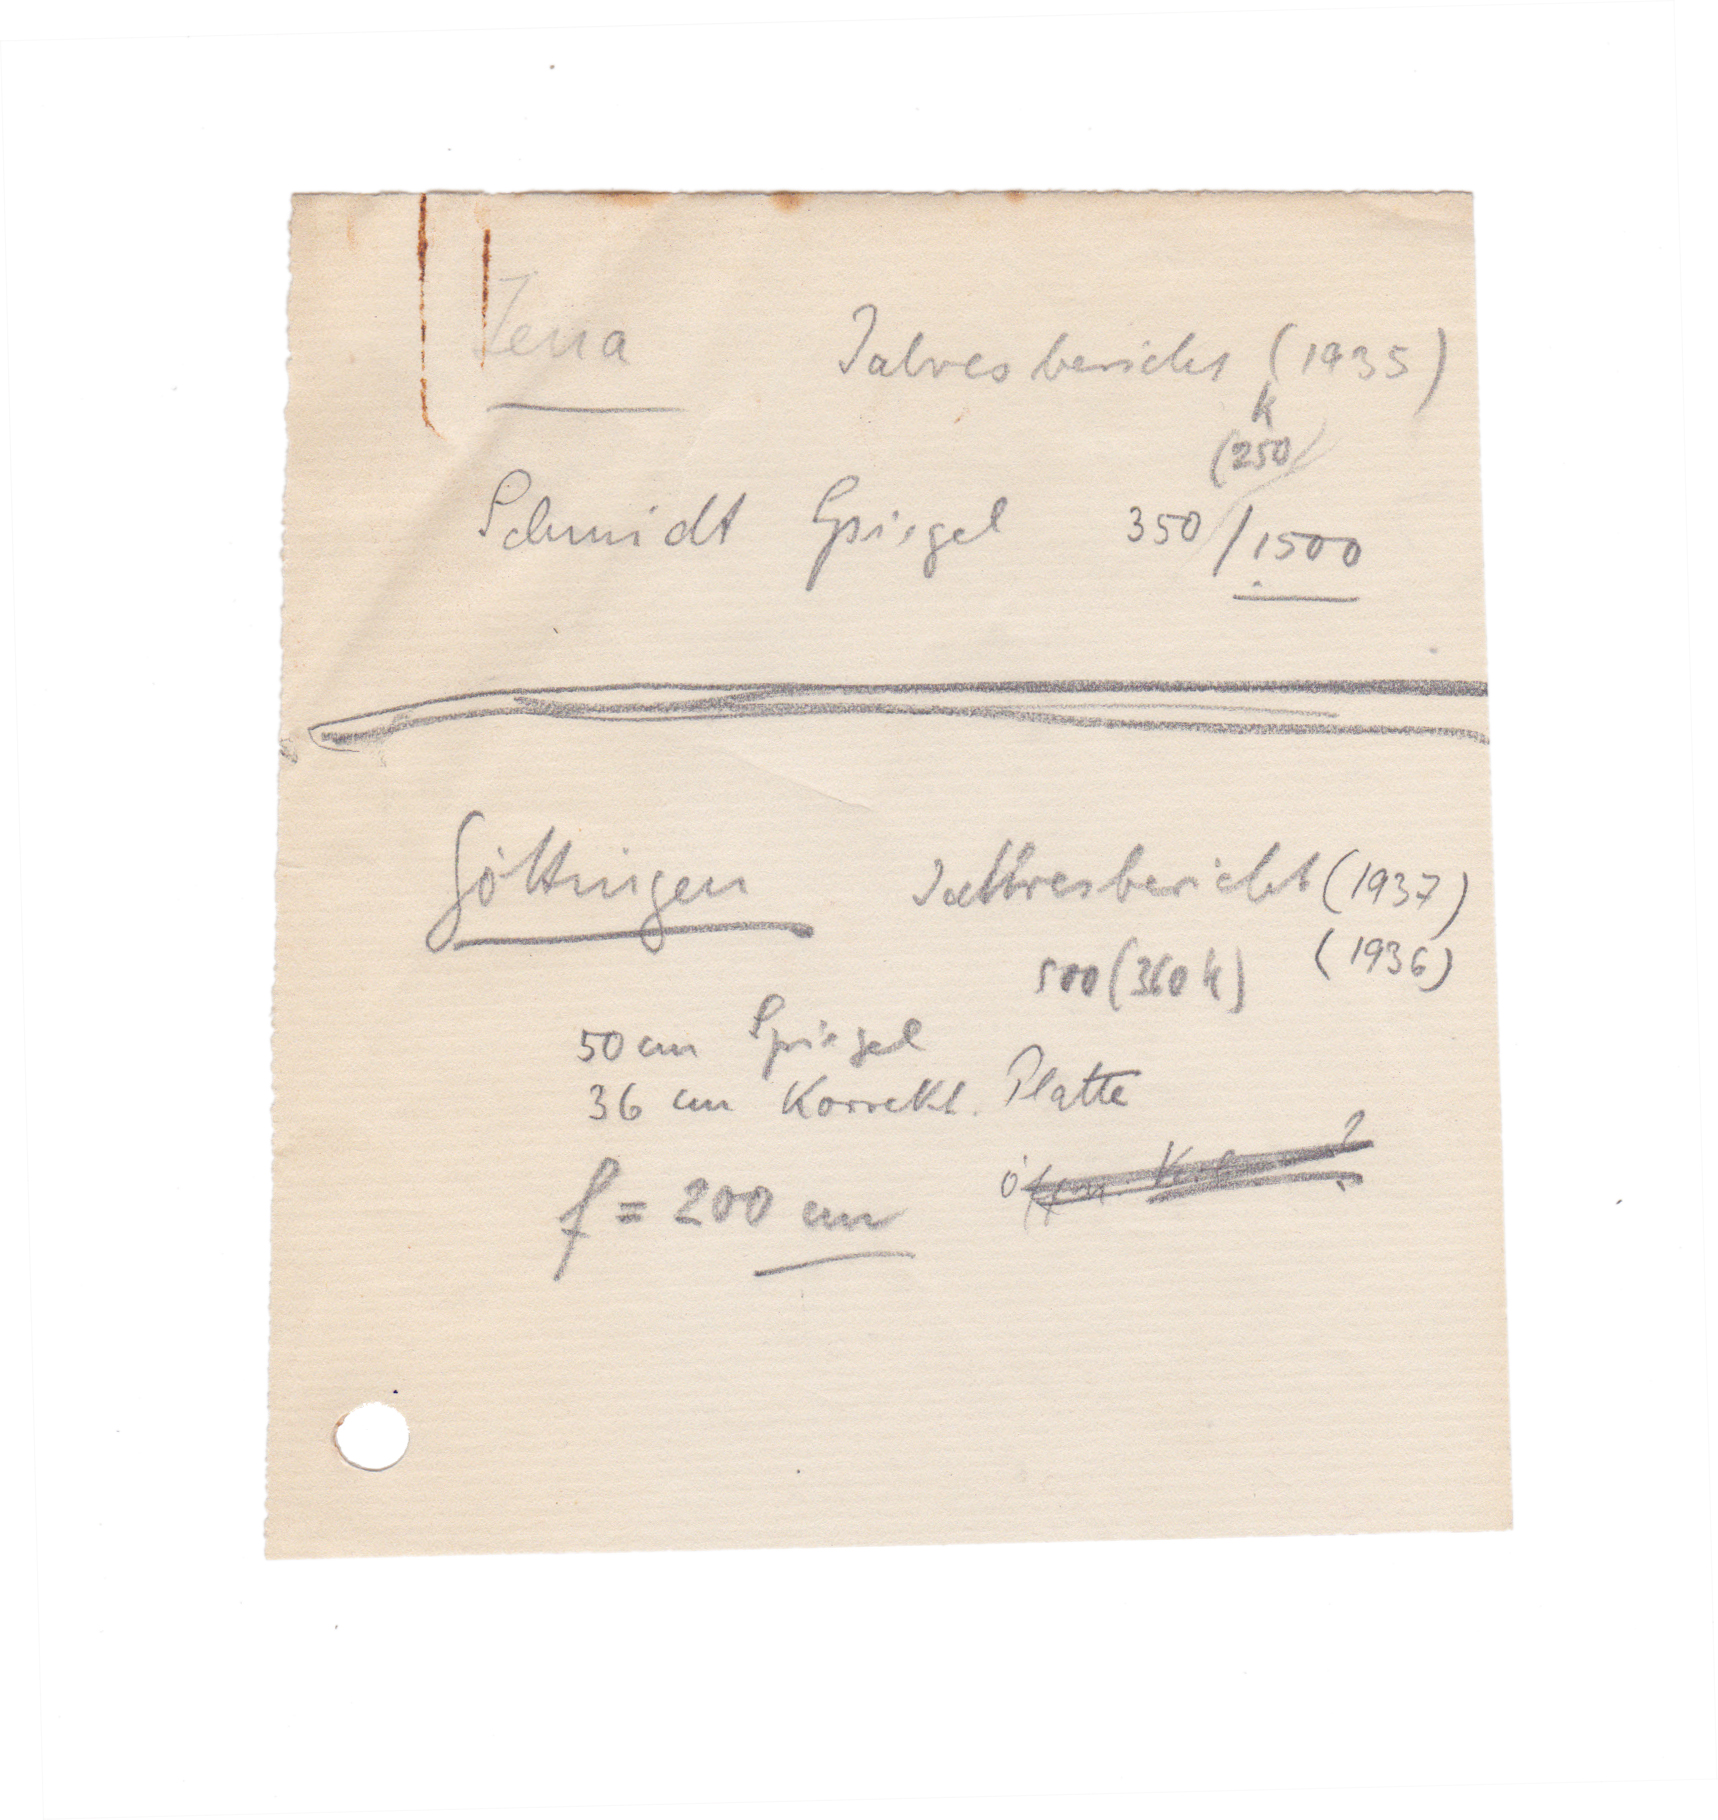 Jena Jahresbericht (1935)
k
(250)
Schmidt Spiegel 350/1500
Göttingen Jahresbericht (1937)
500 (360 k) (1936)
50 cm Spiegel
36 cm Korrekt. Platte
f = 200 cm